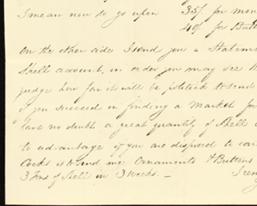 I mean now to go upon 35/ for mon
40/ for Butt
On the other side I send you a Statem
Shell account, in order you may see th
judge how far it will be politick to send
if you succeed in finding a Market for
have no doubt a great quantity of Shell
to advantage if you are disposed to ca
Cook Island me Ornaments & Buttons
3 Tons of Shell in 3 Weeks. —